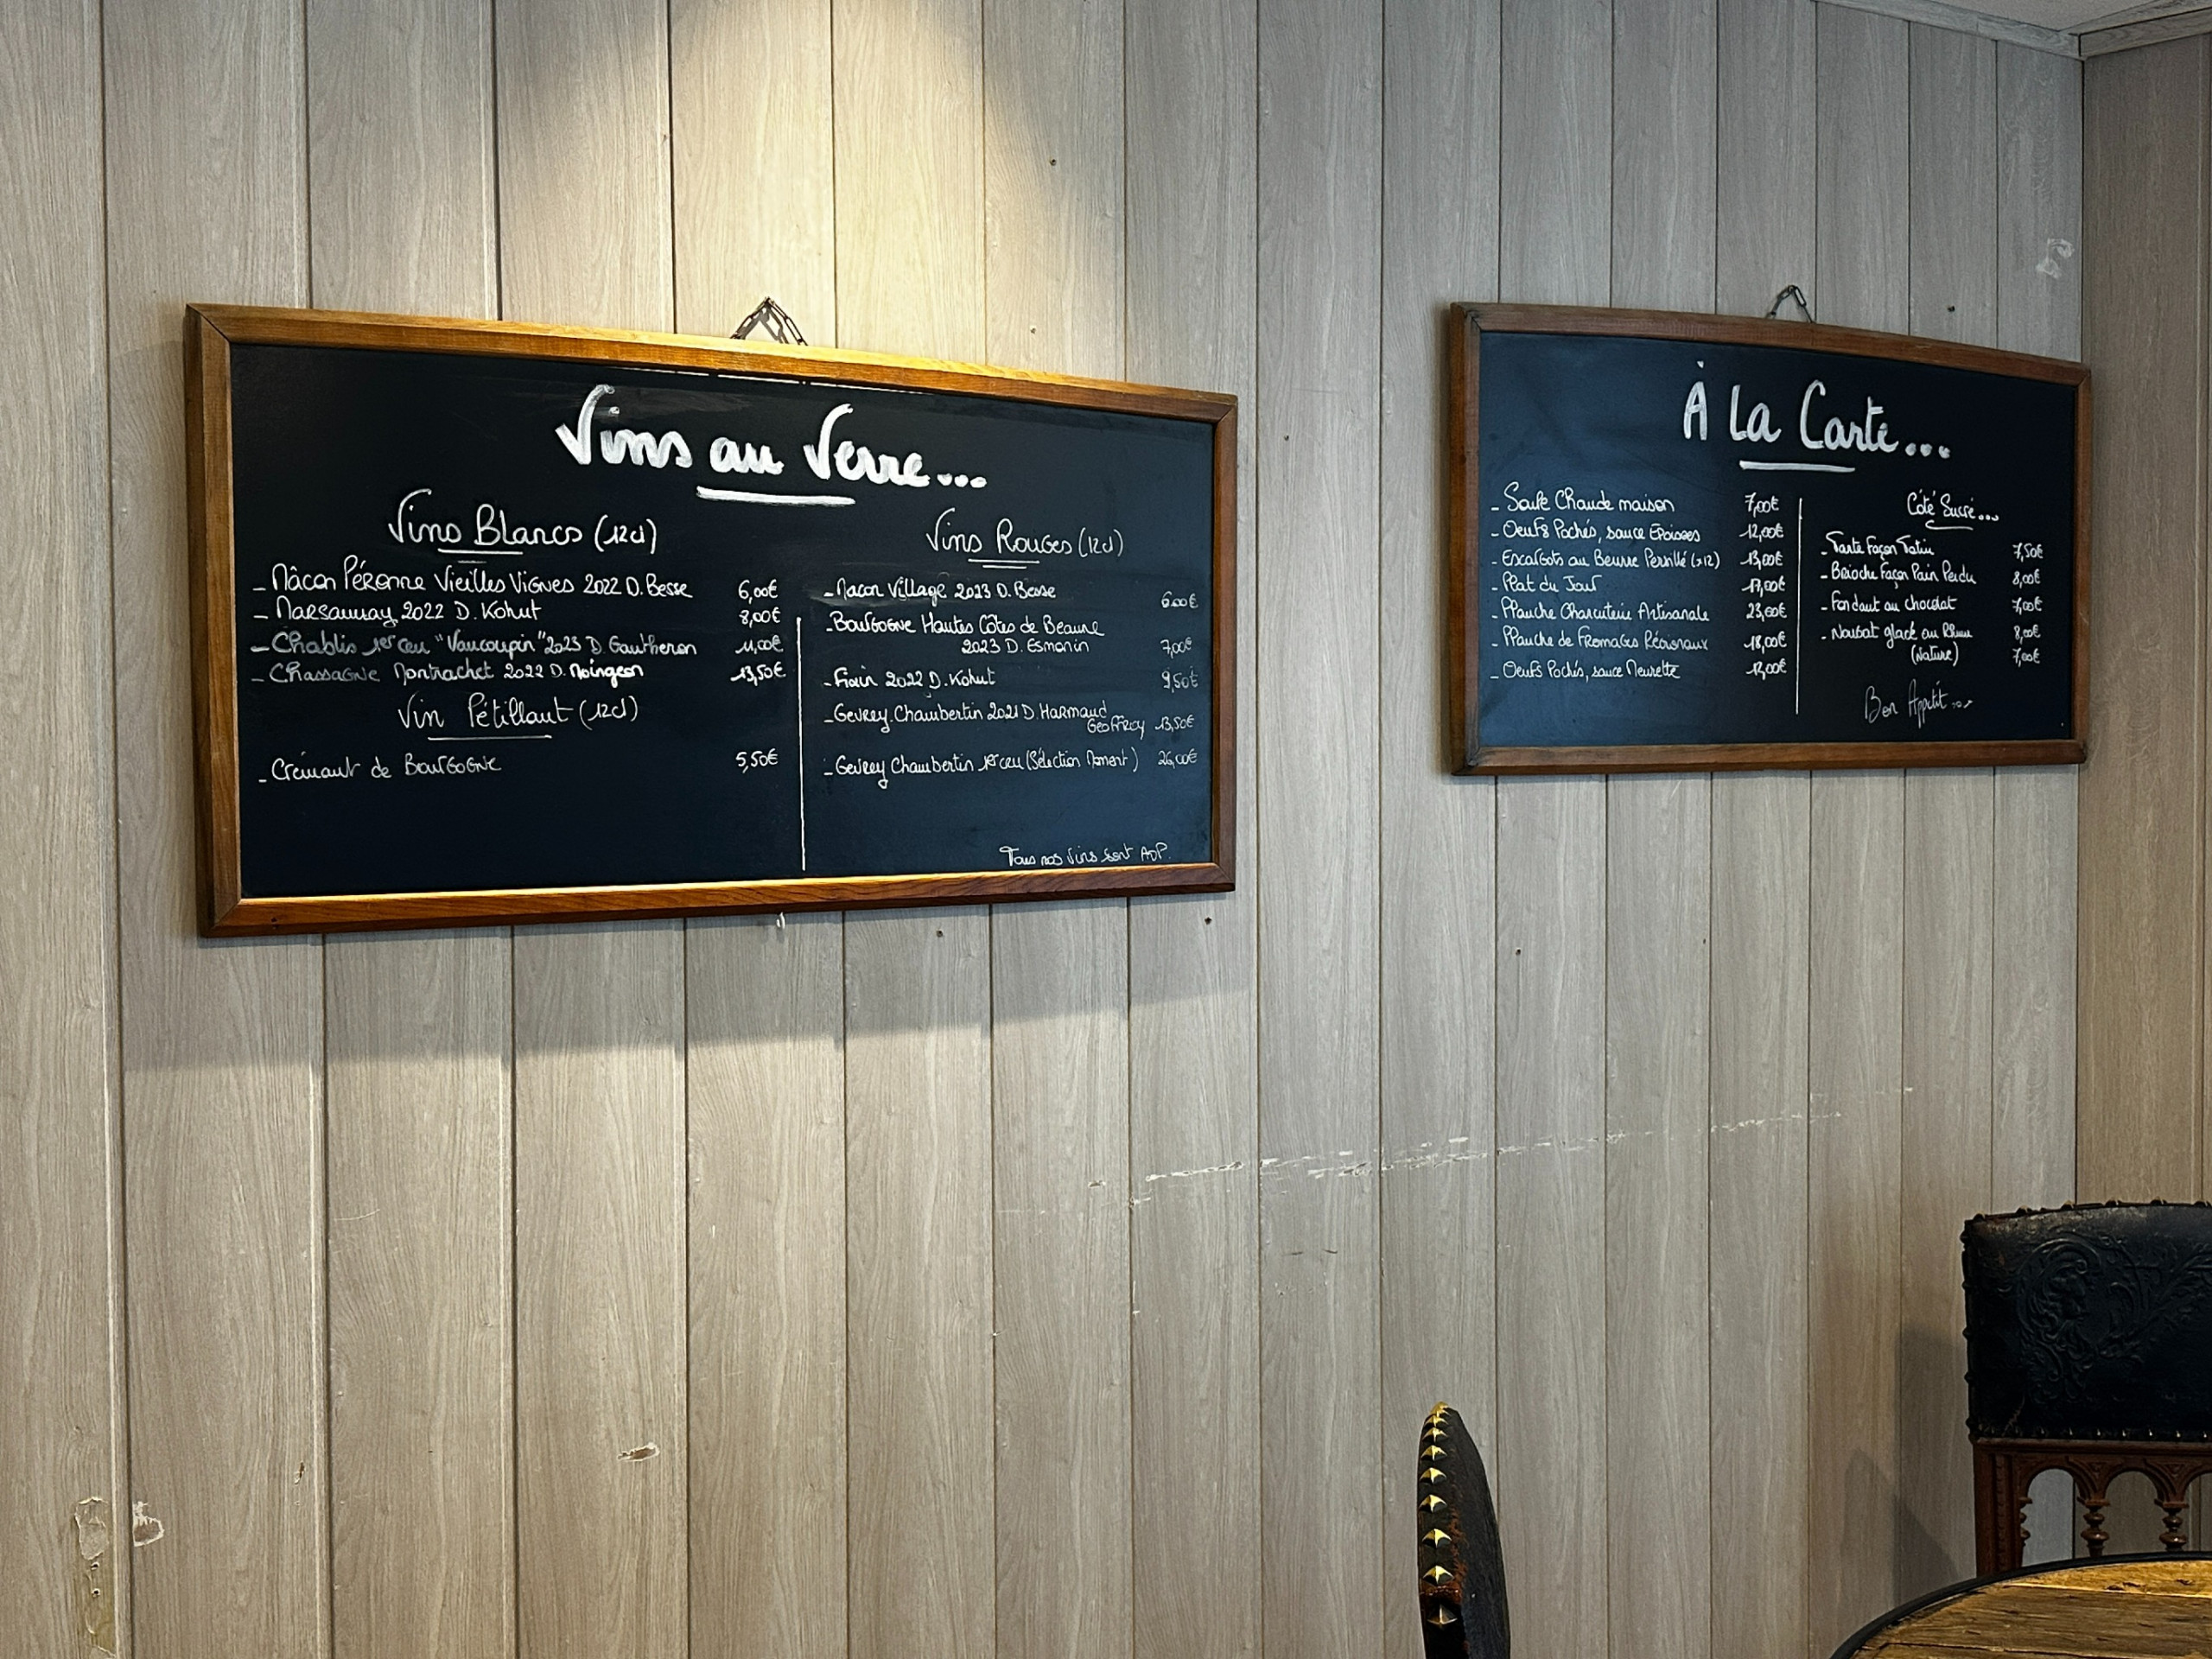 Vins au Verre...
Vins Blancs (12cl)
- Mâcon Péronne Vieilles Vignes 2022 D. Besse 6,00€
- Marsannay 2022 D. Kohut 8,00€
- Chablis 1er cru "Vaucoupin" 2023 D. Gautheron 11,00€
- Chassagne Montrachet 2022 D. Moingeon 13,50€
Vin Pétillant (12cl)
- Crémant de Bourgogne 5,50€
Vins Rouges (12cl)
- Macon Village 2023 D. Besse 6,00€
- Bourgogne Hautes Côtes de Beaune
2023 D. Esmonin 7,00€
- Fixin 2022 D. Kohut 9,50€
- Gevrey. Chambertin 2021 D. Harmand
Geoffroy 13,50€
- Gevrey Chambertin 1er cru (Sélection Moment) 26,00€
Tous nos vins sont AOP.
À La Carte...
- Soupe Chaude maison 7,00€
- Oeufs Pochés, sauce Epoisses 12,00€
- Escargots au Beurre Persillé (x12) 13,00€
- Plat du Jour
- Planche Charcuterie Artisanale 23,00€
- Planche de Fromages Régionaux 18,00€
- Oeufs Pochés, sauce Meurette
Côté Sucré...
- Tarte Façon Tatin 7,50€
- Brioche Façon Pain Perdu 8,00€
- Fondant au chocolat 7,00€
- Nougat glacé au Rhum 8,00€
(Nature) 7,00€
Bon Appétit...